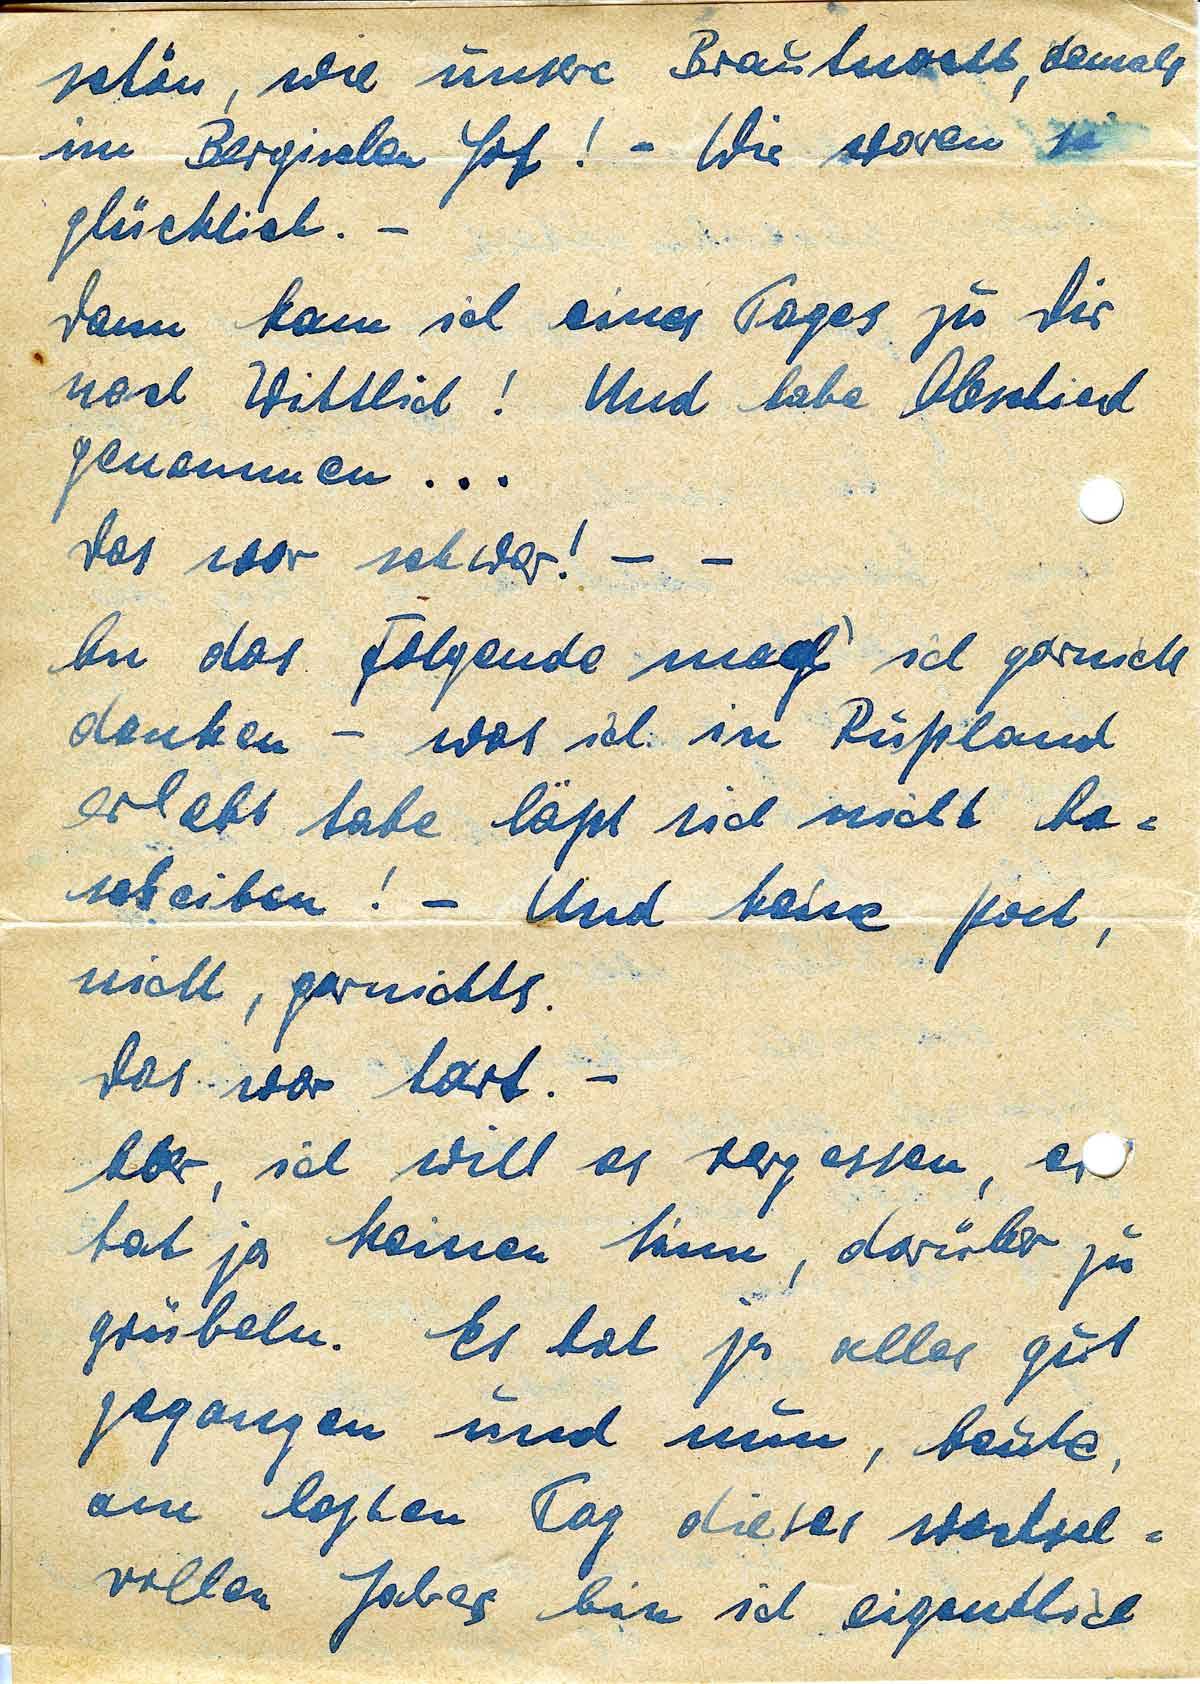 schön, wie unsere Brautnacht, damals
im Bergischen Hof! - Wie waren
glücklich. -
Dann kam ich eines Tages zu Dir
nach Wittlich! Und habe Abschied
genommen...
Das war schwer! - -
An das Folgende mag ich garnicht
denken - was ich in Rußland
erlebt habe läßt sich nicht be=
schreiben! - Und keine Post,
nicht, garnichts.
Das war hart. -
Aber, ich will es vergessen, es
hat ja keinen Sinn, darüber zu
grübeln. Es hat ja alles gut
gegangen und nun, heute,
am letzten Tag dieses wechsel=
vollen Jahres bin ich eigentlich